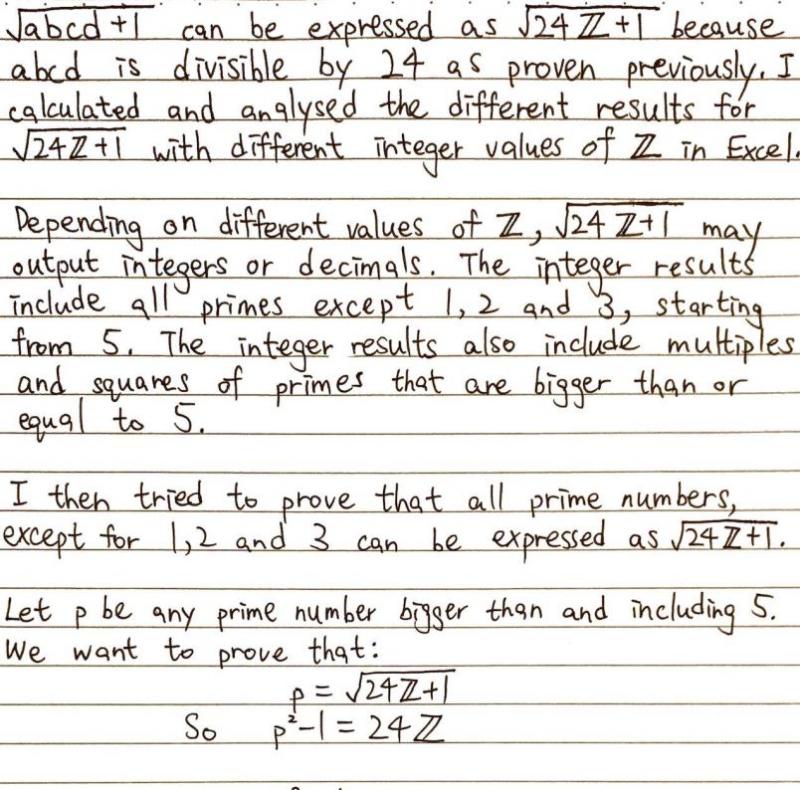 √abcd +1 can be expressed as √24ℤ+1 because
abcd is divisible by 24 as proven previously. I
calculated and analysed the different results for
√24ℤ+1 with different integer values of ℤ in Excel.
Depending on different values of ℤ, √24ℤ+1 may
output integers or decimals. The integer results
include all primes except 1, 2 and 3, starting
from 5. The integer results also include multiples
and squares of primes that are bigger than or
equal to 5.
I then tried to prove that all prime numbers,
except for 1,2 and 3 can be expressed as √24ℤ+1.
Let p be any prime number bigger than and including 5.
We want to prove that:
p = √24ℤ+1
So p²-1 = 24ℤ